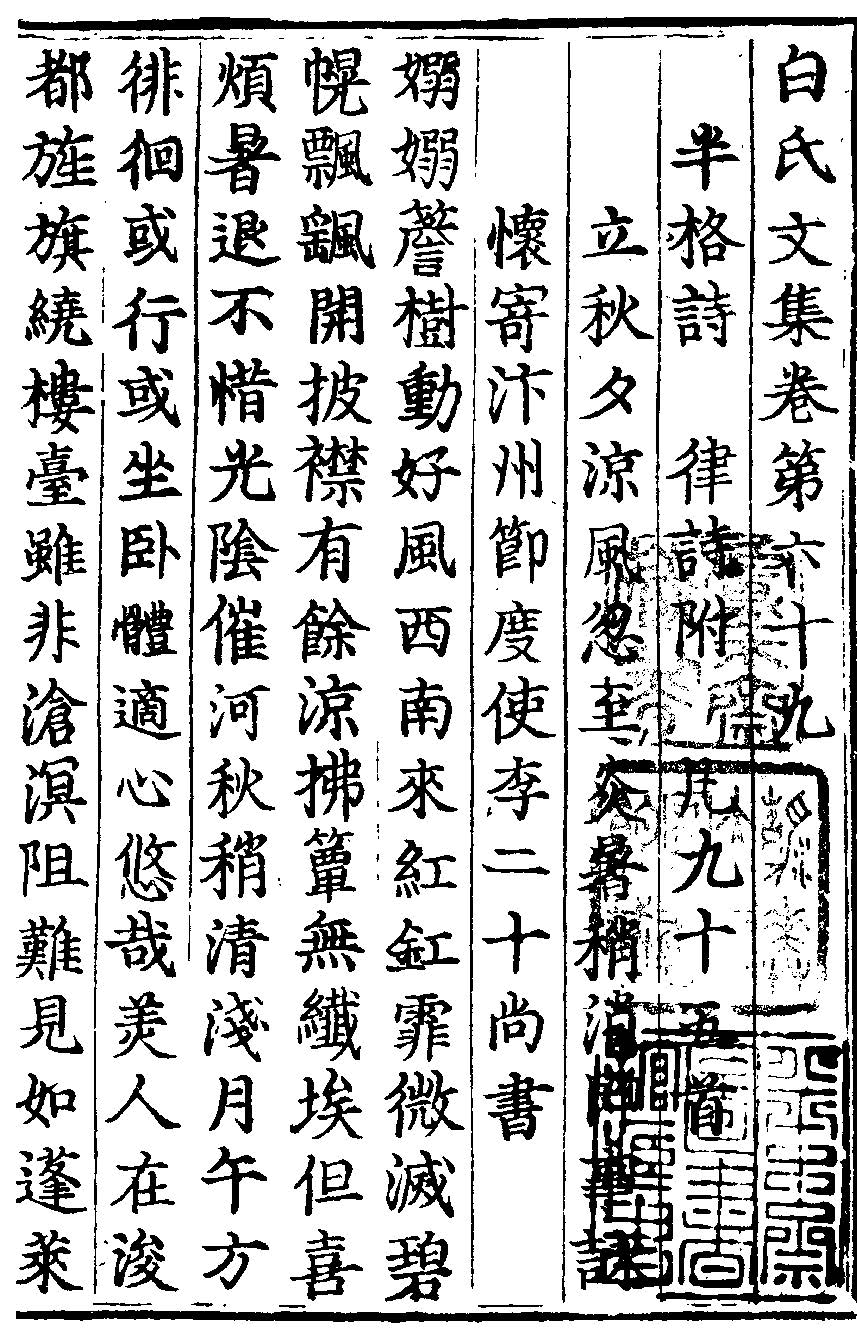 白氏文集卷第六十九
半格詩　律詩附　凡九十五首
立秋夕涼風忽至炎暑稍消即事詠
懷寄汴州節度使李二十尚書
嫋嫋簷樹動好風西南來紅釭霏微滅碧
幌飄颻開披襟有餘涼拂簟無纖埃但喜
煩暑退不惜光陰催河秋稍清淺月午方
徘徊或行或坐卧體適心悠哉美人在浚
都旌旗繞樓臺雖非滄溟阻難見如蓬萊